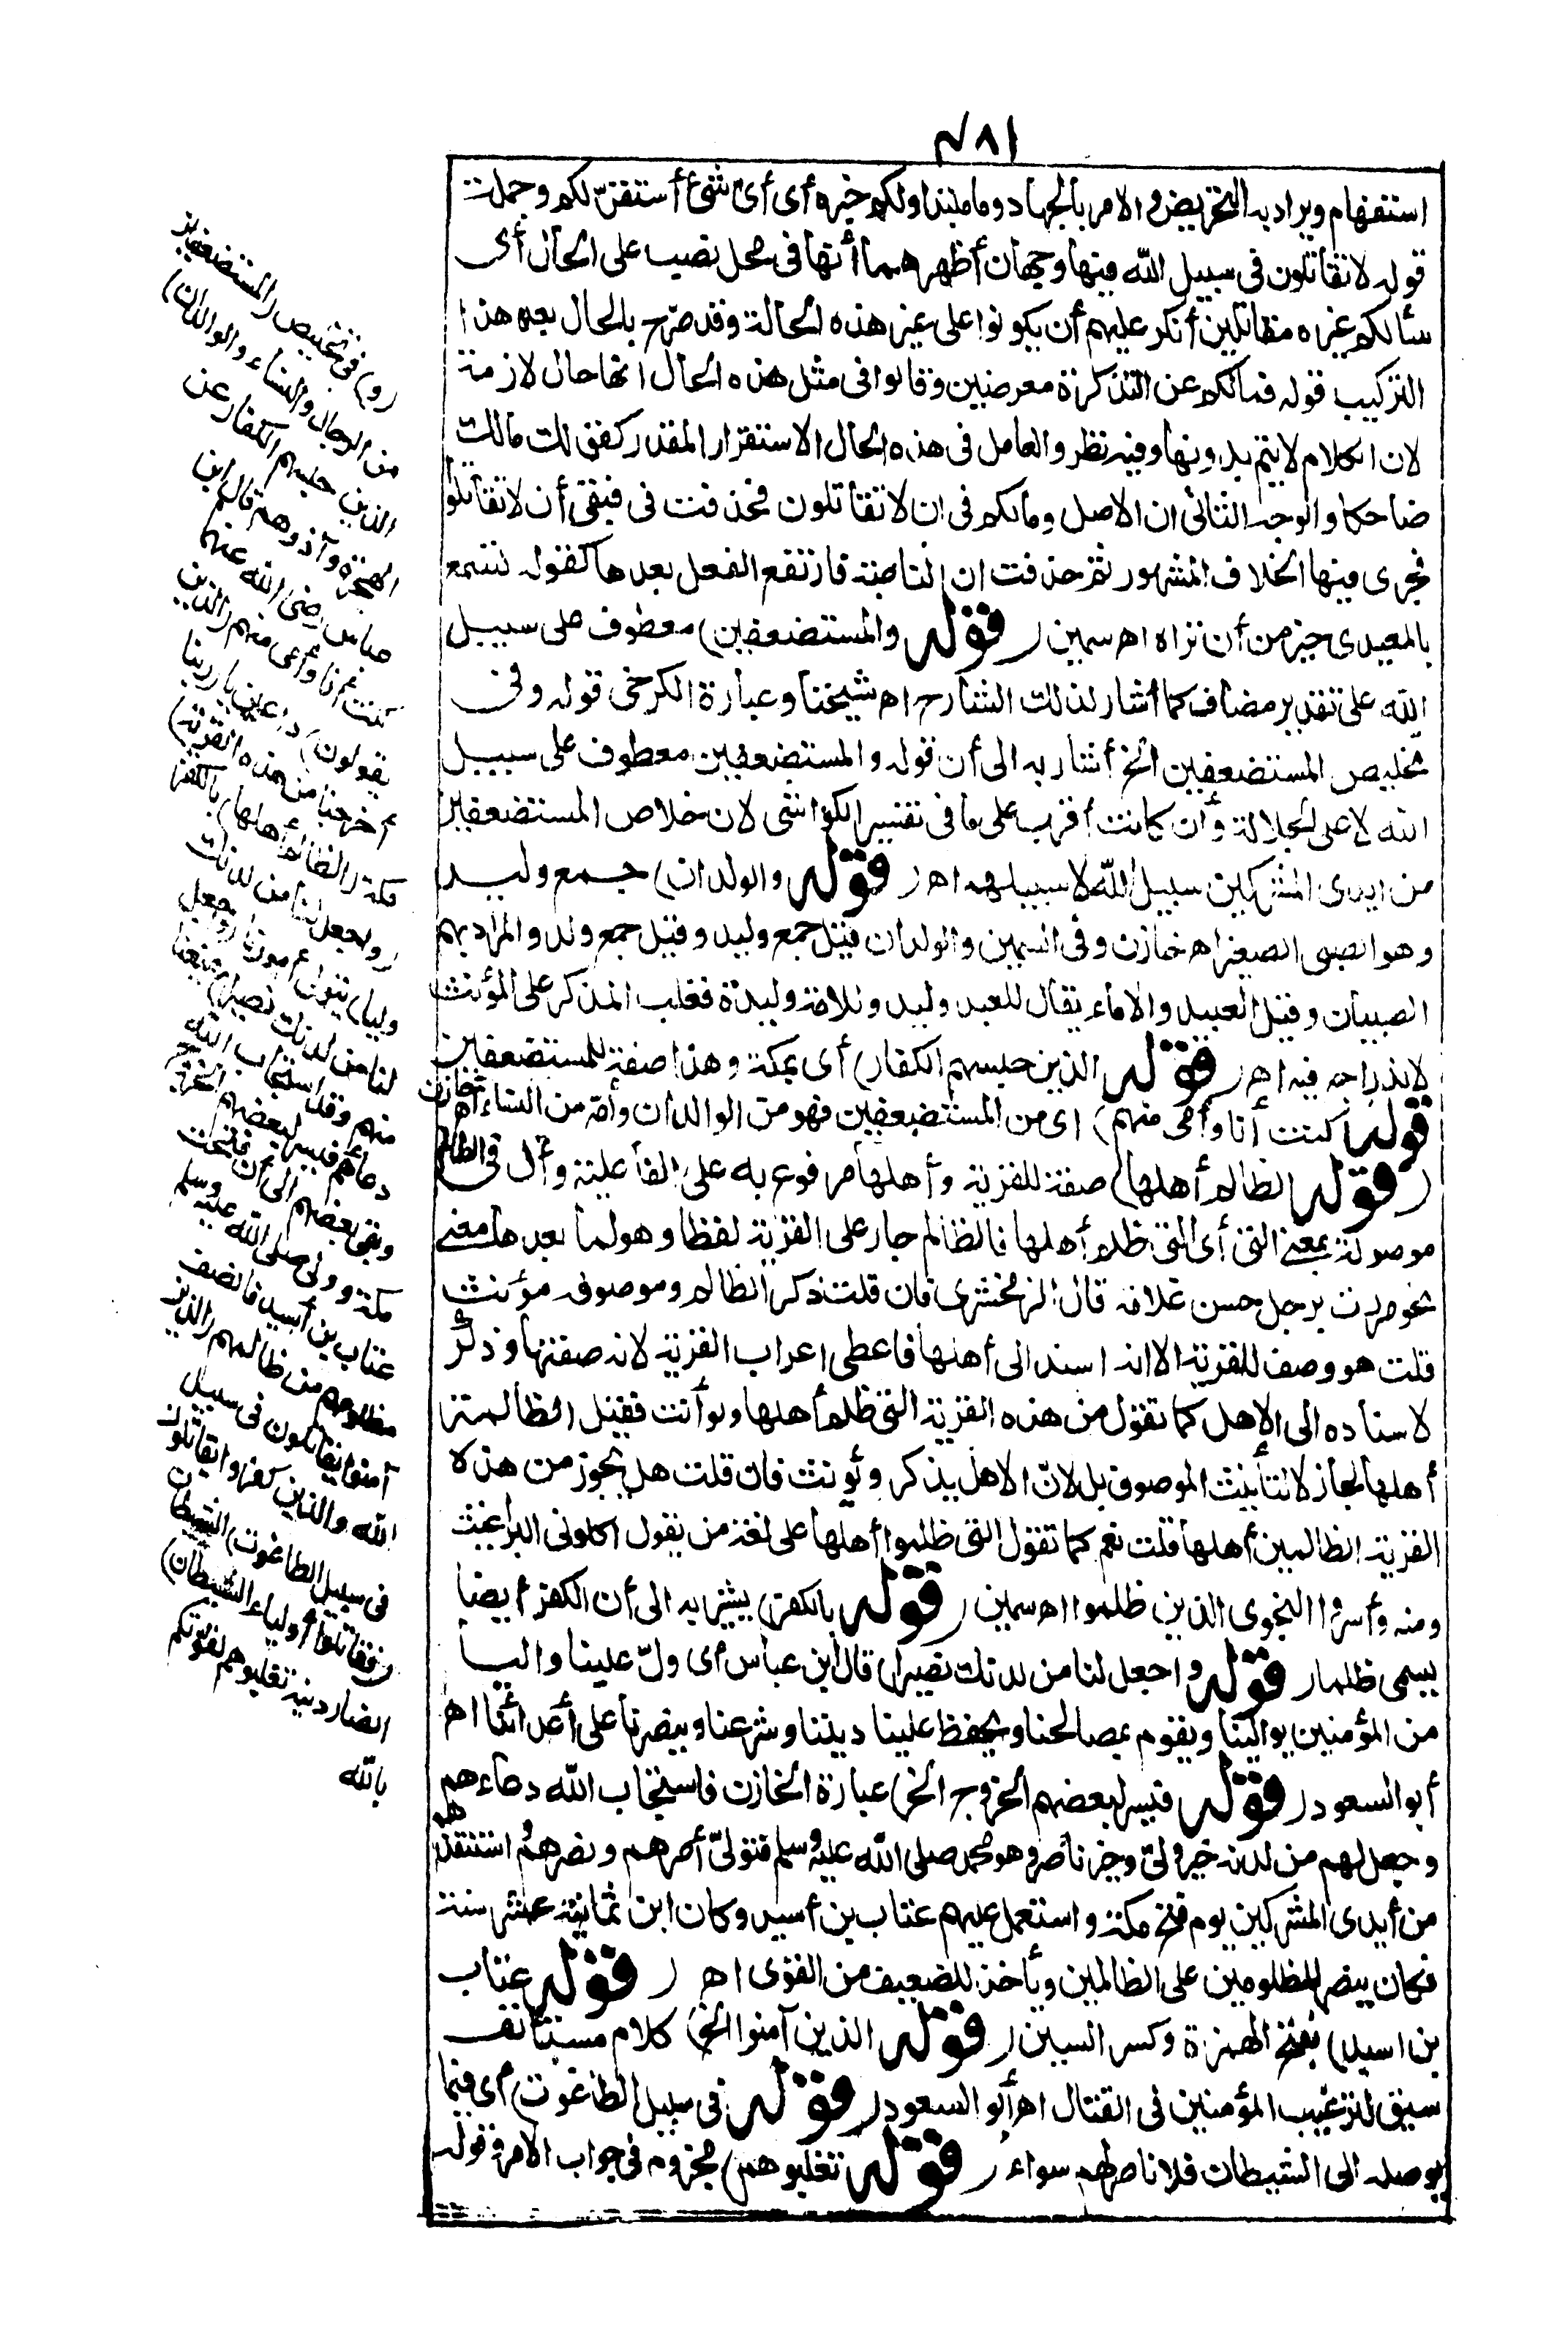 ٤٨١
استفهام ويراد به التحريض والامر بالجهاد وما مبتدأ ولكم خبره أى أى شئ أستقرّ لكم وجملة
قوله لا تقاتلون فى سبيل الله فيها وجهان أظهرهما أنها فى محل نصب على الحال أى
مالكم غيره مقاتلين أنكر عليهم أن يكونوا على غير هذه الحالة وقد صرّح بالحال بعد هذا
التركيب قوله فمالكم عن التذكرة معرضين وقالوا فى مثل هذه الحال انها حال لازمة
لان الكلام لا يتم بدونها وفيه نظر والعامل فى هذه الحال الاستقرار المقدر كقولك مالك
ضاحكا والوجه الثانى ان الاصل ومالكم فى ان لا تقاتلون فحذفت فى فبقى أن لا تقاتلوا
فجرى فيها الخلاف المشهور ثم حذفت ان الناصبة فارتفع الفعل بعدها كقوله تسمع
بالمعيدى خير من أن تراه اهـ سمين (قوله والمستضعفين) معطوف على سبيل
الله على تقدير مضاف كما أشار لذلك الشارح اهـ شيخنا وعبارة الكرخى قوله وفى
تخليص المستضعفين الخ أشار به الى أن قوله والمستضعفين معطوف على سبيل
الله لا على الجلالة وأن كانت أقرب على ما فى تفسير الكواشى لان خلاص المستضعفين
من ايدى المشركين سبيل الله لا سبيلهم اهـ (قوله والولدان) جمع وليد
وهو الصبى الصغير اهـ خازن وفى السمين والولدان قيل جمع وليد وقيل جمع ولد والمراد بهم
الصبيان وقيل العبيد والاماء يقال للعبد وليد وللامة وليدة فغلب المذكر على المؤنث
لاندراجه فيه اهـ (قوله الذين حبسهم الكفار) أى بمكة وهذا صفة للمستضعفين
(قوله كنت أنا وأمى منهم) اى من المستضعفين فهو من الولدان وأمّه من النساء اهـ خازن
(قوله الظالم أهلها) صفة للقرية وأهلها مرفوع به على الفاعلية وأل فى الظالم
موصولة بمعنى التى أى التى ظلم أهلها فالظالم جار على القرية لفظا وهو لما بعدها معنى
نحو مررت برجل حسن غلامه قال الزمخشرى فان قلت ذكر الظالم وموصوفه مؤنث
قلت هو وصف للقرية الا انه اسند الى أهلها فاعطى اعراب القرية لانه صفتها وذكّر
لاسناده الى الاهل كما تقول من هذه القرية التى ظلم أهلها ولو أنث فقيل الظالمة
أهلها لجاز لا لتأنيث الموصوف بل لانّ الاهل يذكر ويؤنث فان قلت هل يجوز من هذه
القرية الظالمين أهلها قلت نعم كما تقول التى ظلموا أهلها على لغة من يقول اكلونى البراغيث
ومنه وأسروا النجوى الذين ظلموا اهـ سمين (قوله بالكفر) يشير به الى أن الكفر أيضا
يسمى ظلما (قوله واجعل لنا من لدنك نصيرا) قال ابن عباس أى ولّ علينا واليا
من المؤمنين يوالينا ويقوم بمصالحنا ويحفظ علينا ديننا وشرعنا وينصرنا على أعدائنا اهـ
أبو السعود (قوله فيسر لبعضهم الخروج الخ) عبارة الخازن فاستجاب الله دعاءهم
وجعل لهم من لدنه خير ولىّ وخير ناصر وهو محمد صلى الله عليه وسلم فتولىّ أمرهم ونصرهم واستنقذهم
من أيدى المشركين يوم فتح مكة واستعمل عليهم عتاب بن أسيد وكان ابن ثمانية عشر سنة
فكان ينصر المظلومين على الظالمين ويأخذ للضعيف من القوى اهـ (قوله عتاب
بن اسيد) بفتح الهمزة وكسر السين (قوله الذين آمنوا الخ) كلام مستأنف
سيق لترغيب المؤمنين فى القتال اهـ أبو السعود (قوله فى سبيل الطاغوت) أى فيما
يوصله الى الشيطان فلا ناصر لهم سواء (قوله تغلبوهم) مجزوم فى جواب الامر وقوله
(و) فى تخليص (المستضعفين
من الرجال والنساء والولدان)
الذين حبسهم الكفار عن
الهجرة وآذوهم قال ابن
عباس رضى الله عنهما
كنت أنا وأمى منهم (الذين
يقولون) داعين يا (ربنا
أخرجنا من هذه القرية)
مكة (الظالم أهلها) بالكفر
(واجعل لنا من لدنك
وليا) يتولى أمورنا (واجعل
لنا من لدنك نصيرا) يمنعنا
منهم وقد استجاب الله
دعاءهم فيسر لبعضهم الخروج
وبقى بعضهم الى أن فتحت
مكة وولى صلى الله عليه وسلم
عتاب بن أسيد فانصف
مظلومهم من ظالمهم (الذين
آمنوا يقاتلون فى سبيل
الله والذين كفروا يقاتلون
فى سبيل الطاغوت) الشيطان
(فقاتلوا أولياء الشيطان)
انصار دينه تغلبوهم لقوتكم
بالله